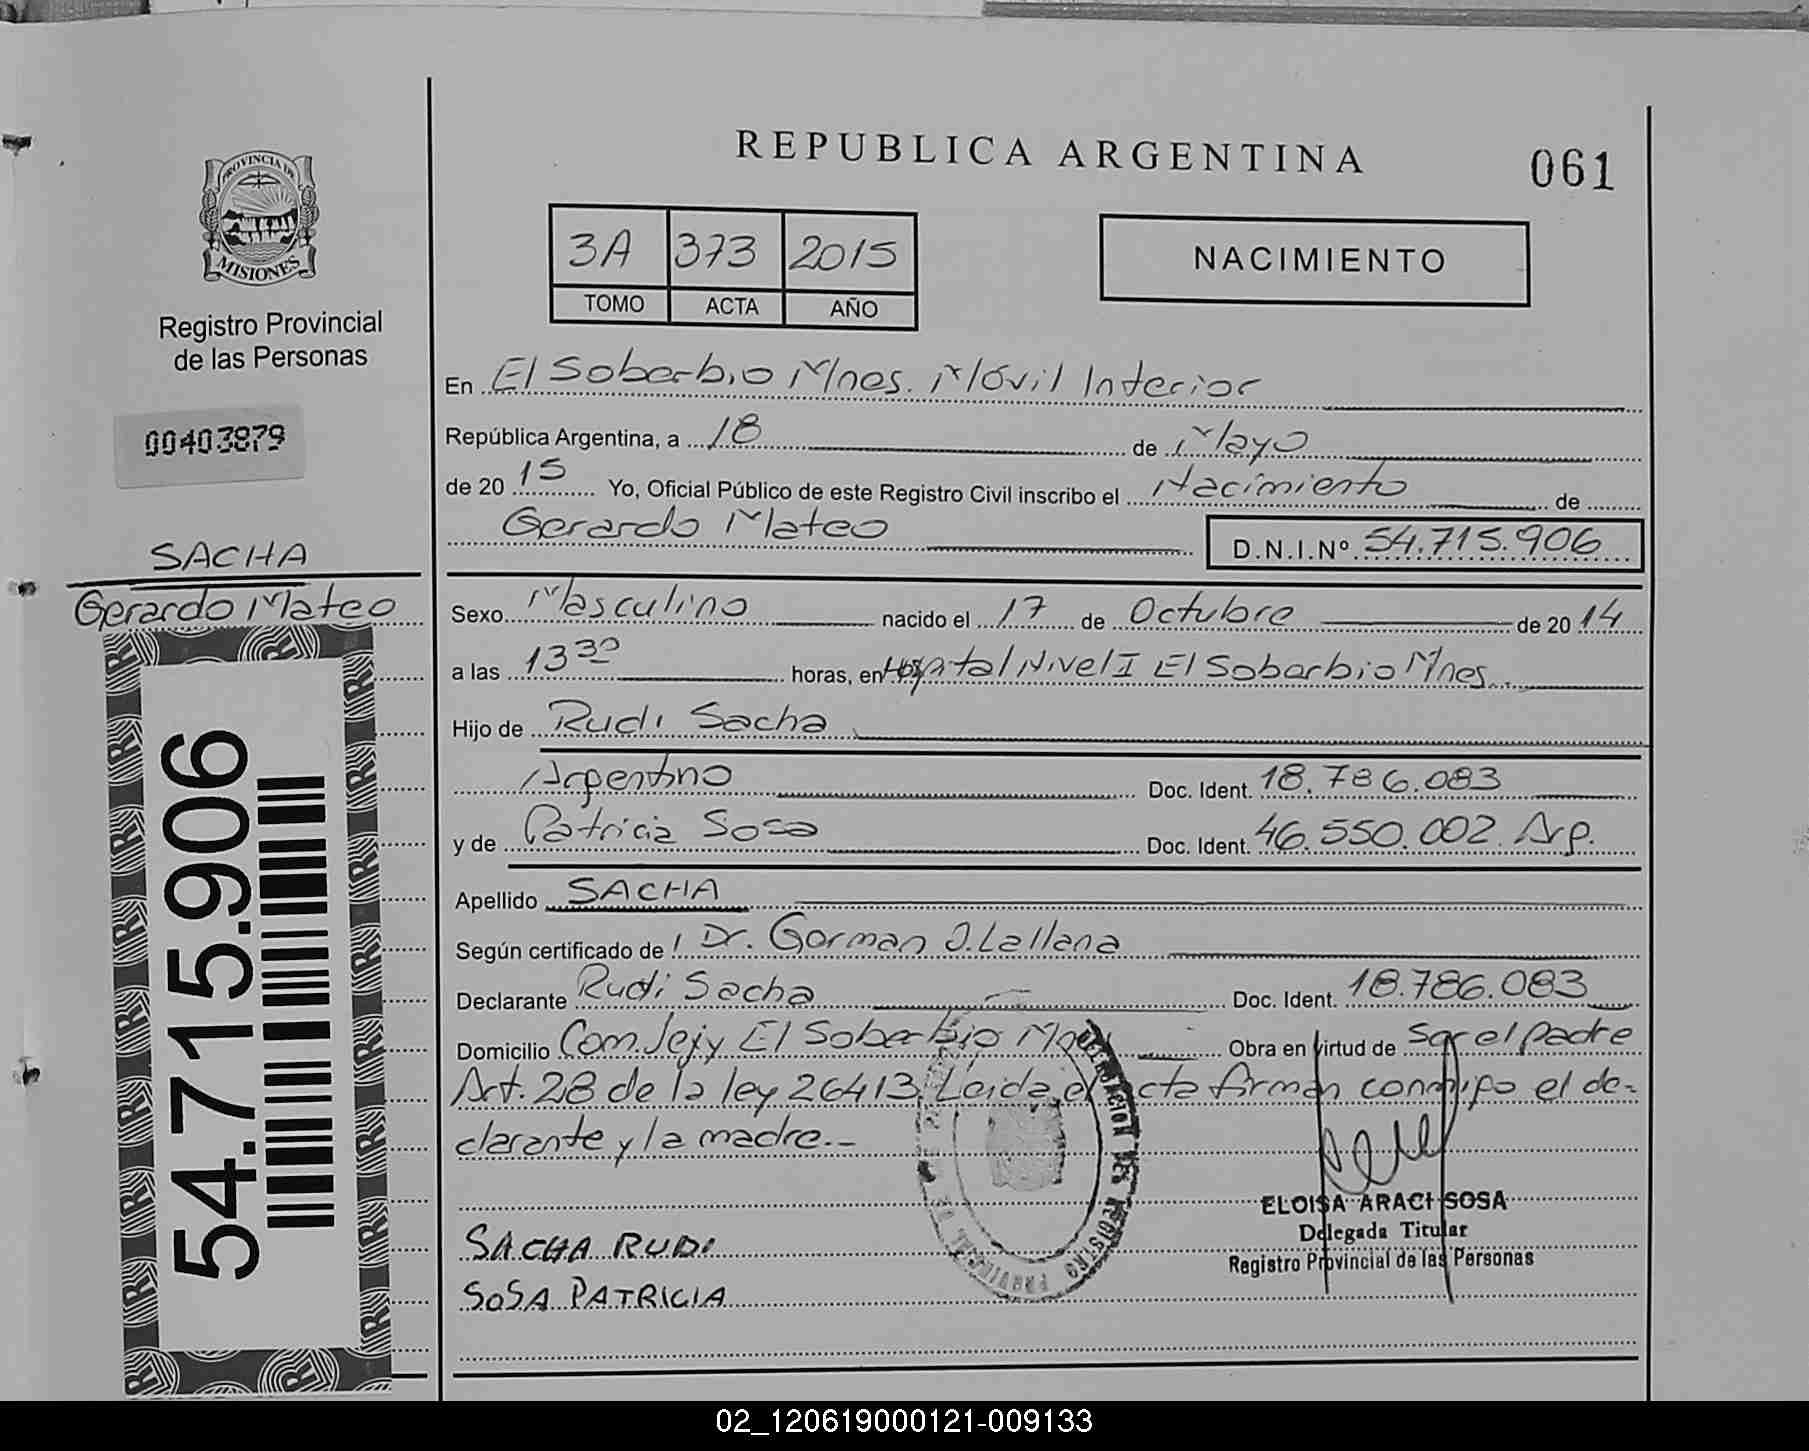 REPUBLICA ARGENTINA
061
PROVINCIA DE
MISIONES
Registro Provincial
de las Personas
00403879
3A 373 2015
TOMO ACTA AÑO
NACIMIENTO
En El Soberbio Mnes. Móvil Interior
República Argentina, a 18 de Mayo
de 2015 Yo, Oficial Público de este Registro Civil inscribo el Nacimiento de
Gerardo Mateo D.N.I.Nº 54.715.906
SACHA
Gerardo Mateo
54.715.906
Sexo Masculino nacido el 17 de Octubre de 2014
a las 13 30 horas, en Hospital Nivel I El Soberbio Mnes.
Hijo de Rudi Sacha
Argentino Doc. Ident. 18.786.083
y de Patricia Sosa Doc. Ident. 46.550.002 Arg.
Apellido SACHA
Según certificado de Dr. German J. Lallana
Declarante Rudi Sacha Doc. Ident. 18.786.083
Domicilio Com. Jejy El Soberbio Mnes Obra en virtud de Ser el padre
Art. 28 de la ley 26413. Leida el acta firman conmigo el de-
clarante y la madre.-
DELEGACION DEL REGISTRO PROVINCIAL DE
ELOISA ARACI SOSA
Delegada Titular
Registro Provincial de las Personas
SACHA RUDI
SOSA PATRICIA
02_120619000121-009133